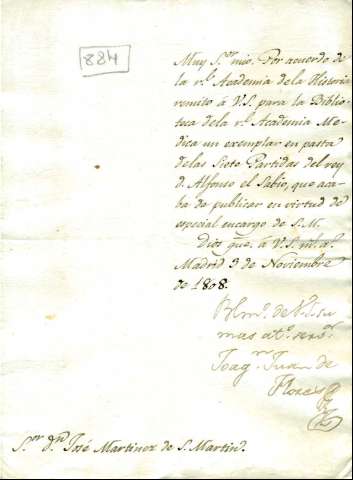 884
Muy S.or mio. Por acuerdo de
la r.l Academia de la Historia
remito á V.S. para la Biblio-
teca de la r.l Academia Me-
dica un exemplar en pasta
de las Siete Partidas del rey
d. Alfonso el Sabio, que aca-
ba de publicar en virtud de
especial encargo de S.M.
Dios gue. á V.S. m.s a.s
Madrid 3 de Noviembre
de 1808.
mas at.o ser.or
Joaq.n Juan de
Flores
S.or D.n José Martinez de S. Martin.